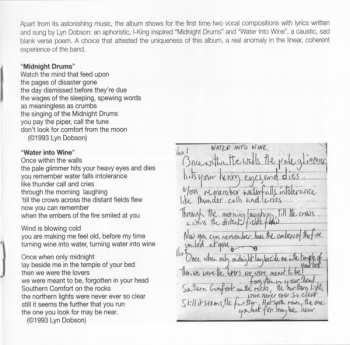 Apart from its astonishing music, the album shows for the first time two vocal compositions with lyrics written
and sung by Lyn Dobson: an aphoristic, I-King inspired "Midnight Drums" and "Water into Wine", a caustic, sad
blank verse poem. A choice that attested the uniqueness of this album, a real anomaly in the linear, coherent
experience of the band.
"Midnight Drums"
Watch the mind that feed upon
the pages of disaster gone
the day dismissed before they're due
the wages of the sleeping, spewing words
as meaningless as crumbs
the singing of the Midnight Drums
you pay the piper, call the tune
don't look for comfort from the moon
(©1993 Lyn Dobson)
"Water into Wine"
Once within the walls
the pale glimmer hits your heavy eyes and dies
you remember water falls intolerance
like thunder call and cries
through the morning laughing
'till the crows across the distant fields flew
now you can remember
when the embers of the fire smiled at you
Wind is blowing cold
you are making me feel old, before my time
turning wine into water, turning water into wine
Once when only midnight
lay beside me in the temple of your bed
then we were the lovers
we were meant to be, forgotten in your head
Southern Comfort on the rocks
the northern lights were never ever so clear
still it seems the further that you run
the one you look for may be near.
(©1993 Lyn Dobson)
WATER INTO WINE
Once within the walls the pale glimmer
hits your heavy eyes and dies
you remember waterfalls intolerance
like thunder calls and cries
Through the morning laughing, till the crows
across the distant fields flew
Now you can remember when the embers of the fire
smiled at you
Once when only midnight lay beside me in the temple of
your bed
then we were the lovers we were meant to be
forgotten in your head
Southern Comfort on the rocks, the northern lights
were never ever so clear
Still it seems the further that you run, the one
you look for may be near